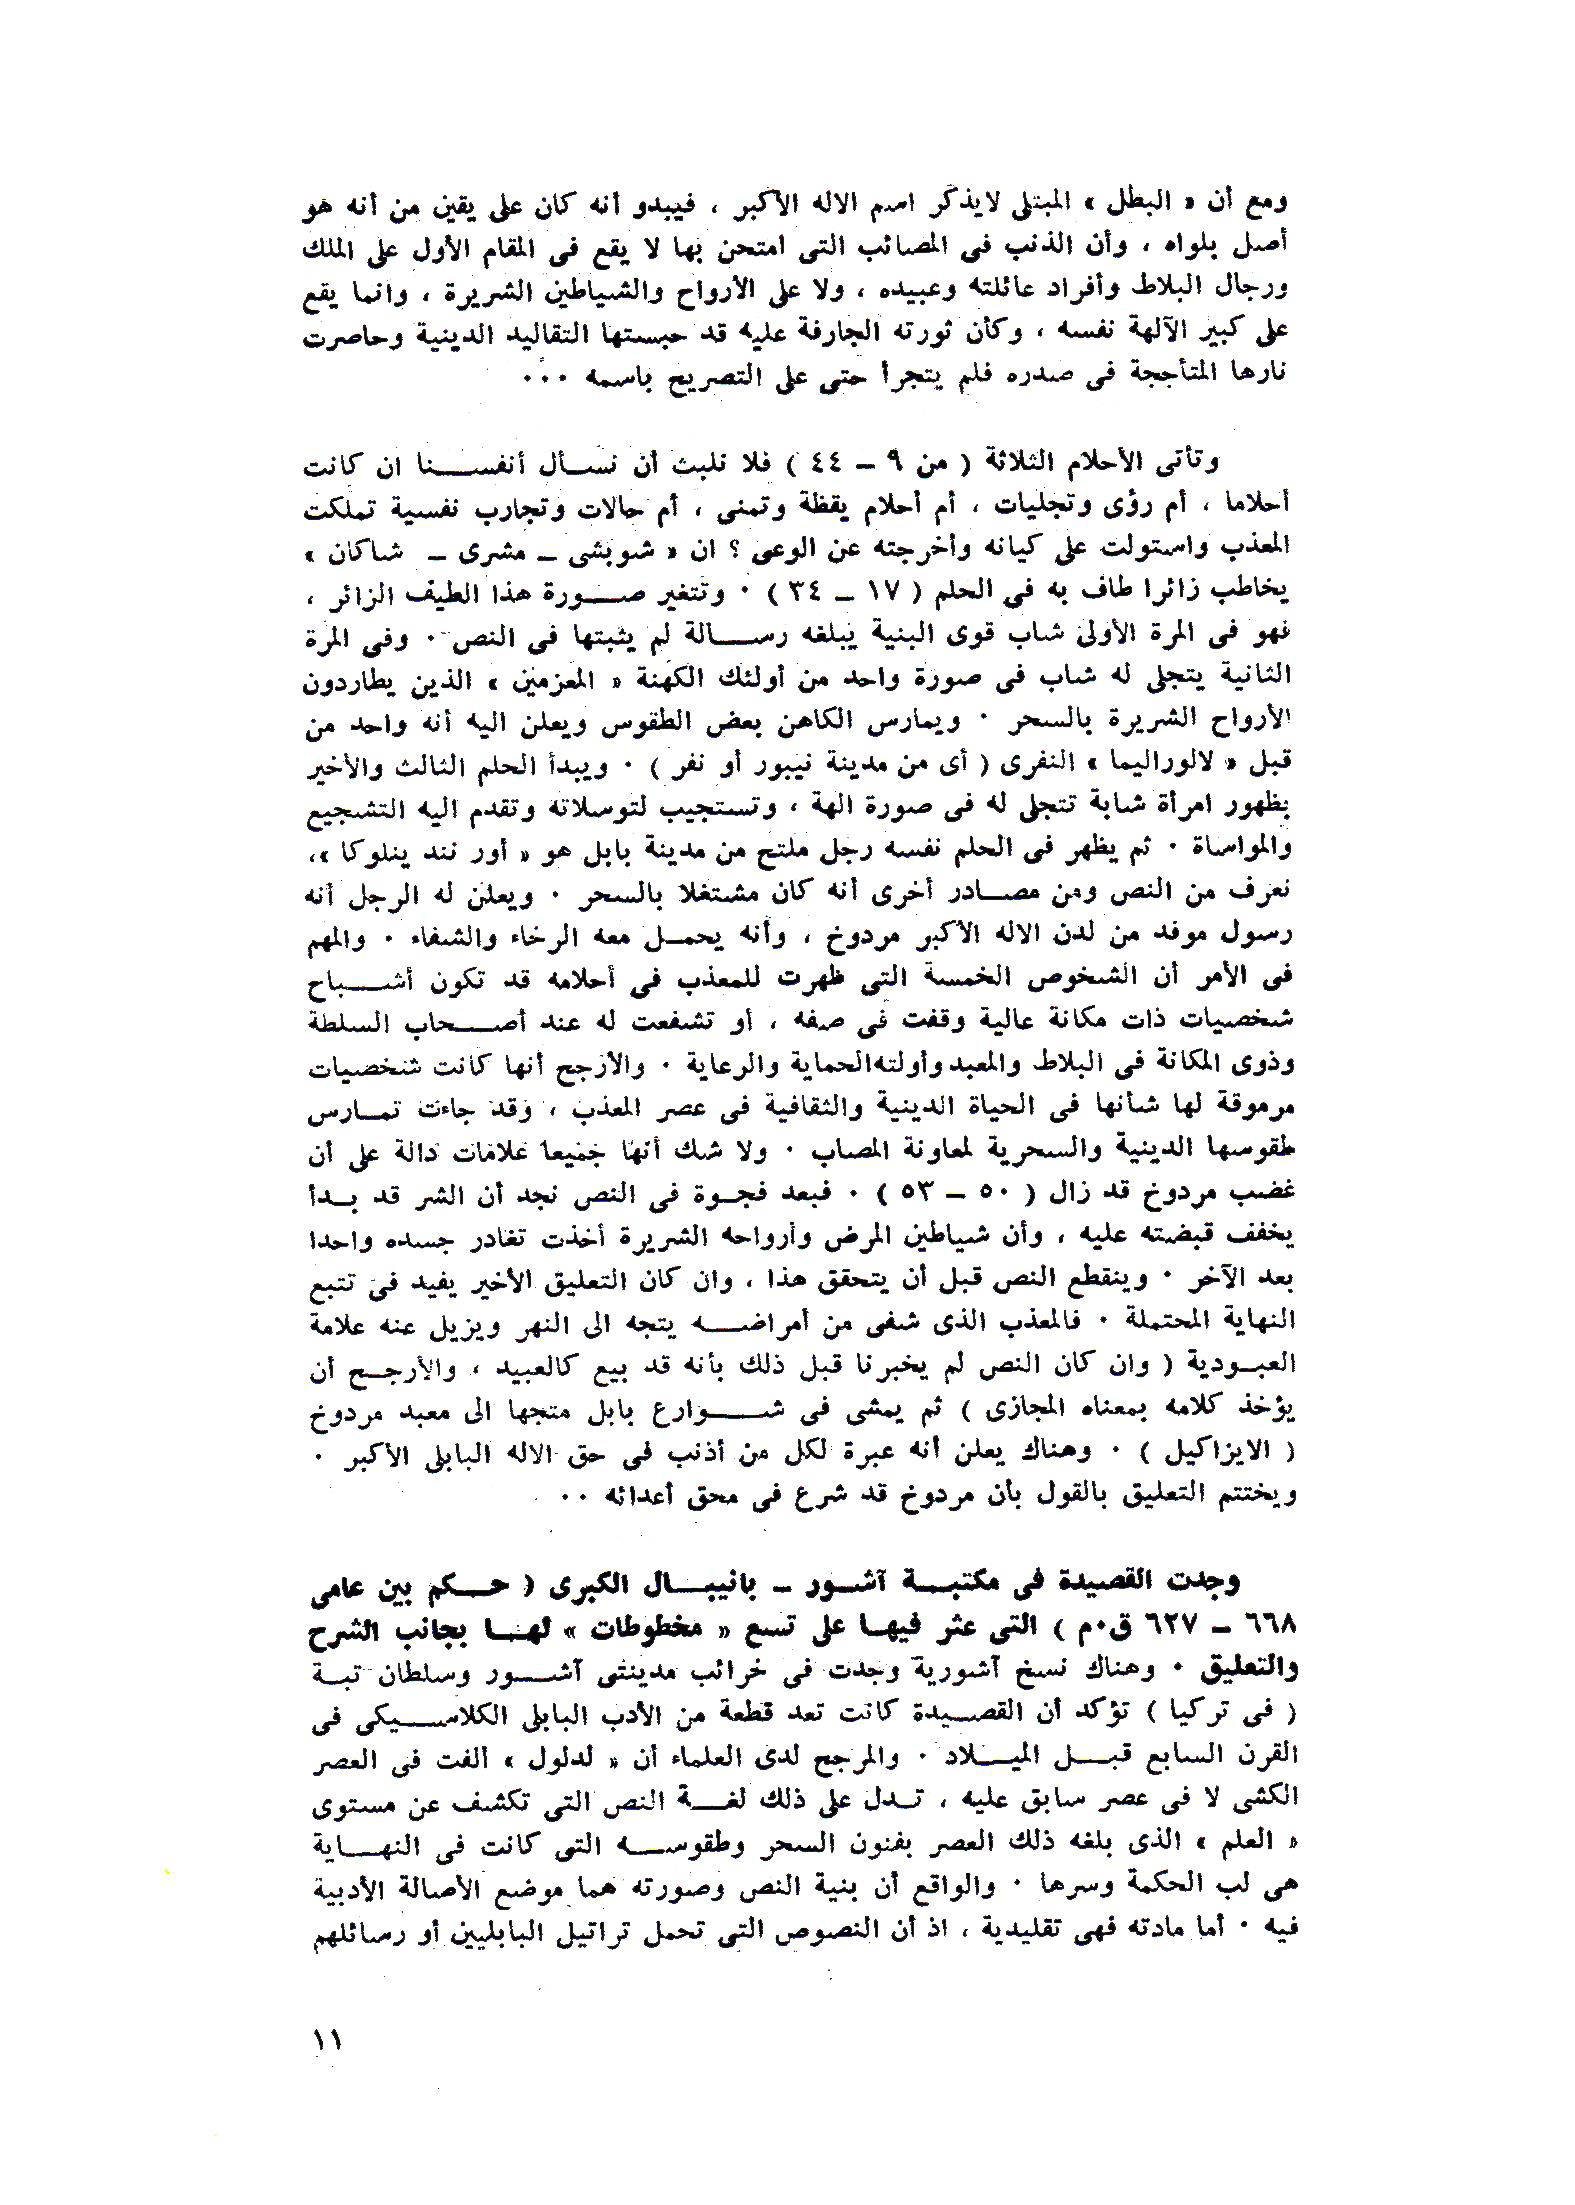 ومع أن « البطل » المبتلى لايذكر اسم الاله الأكبر ، فيبدو أنه كان على يقين من أنه هو
أصل بلواه ، وأن الذنب فى المصائب التى امتحن بها لا يقع فى المقام الأول على الملك
ورجال البلاط وأفراد عائلته وعبيده ، ولا على الأرواح والشياطين الشريرة ، وانما يقع
على كبير الآلهة نفسه ، وكأن ثورته الجارفة عليه قد حبستها التقاليد الدينية وحاصرت
نارها المتأججة فى صدره فلم يتجرأ حتى على التصريح باسمه ٠٠٠
وتأتى الأحلام الثلاثة ( من ٩ – ٤٤ ) فلا نلبث أن نسأل أنفسنا ان كانت
أحلاما ، أم رؤى وتجليات ، أم أحلام يقظة وتمنى ، أم حالات وتجارب نفسية تملكت
المعذب واستولت على كيانه وأخرجته عن الوعى ؟ ان « شوبشى – مشرى – شاكان »
يخاطب زائرا طاف به فى الحلم ( ١٧ – ٣٤ ) ٠ وتتغير صورة هذا الطيف الزائر ،
فهو فى المرة الأولى شاب قوى البنية يبلغه رسالة لم يثبتها فى النص ٠ وفى المرة
الثانية يتجلى له شاب فى صورة واحد من أولئك الكهنة « المعزمين » الذين يطاردون
الأرواح الشريرة بالسحر ٠ ويمارس الكاهن بعض الطقوس ويعلن اليه أنه واحد من
قبل « لالوراليما » النفرى ( أى من مدينة نيبور أو نفر ) ٠ ويبدأ الحلم الثالث والأخير
بظهور امرأة شابة تتجلى له فى صورة الهة ، وتستجيب لتوسلاته وتقدم اليه التشجيع
والمواساة ٠ ثم يظهر فى الحلم نفسه رجل ملتح من مدينة بابل هو « أور نند ينلوكا »،
نعرف من النص ومن مصادر أخرى أنه كان مشتغلا بالسحر ٠ ويعلن له الرجل أنه
رسول موفد من لدن الاله الأكبر مردوخ ، وأنه يحمل معه الرخاء والشفاء ٠ والمهم
فى الأمر أن الشخوص الخمسة التى ظهرت للمعذب فى أحلامه قد تكون أشباح
شخصيات ذات مكانة عالية وقفت فى صفه ، أو تشفعت له عند أصحاب السلطة
وذوى المكانة فى البلاط والمعبد وأولته الحماية والرعاية ٠ والأرجح أنها كانت شخصيات
مرموقة لها شأنها فى الحياة الدينية والثقافية فى عصر المعذب ، وقد جاءت تمارس
طقوسها الدينية والسحرية لمعاونة المصاب ٠ ولا شك أنها جميعا علامات دالة على أن
غضب مردوخ قد زال ( ٥٠ – ٥٣ ) ٠ فبعد فجوة فى النص نجد أن الشر قد بدأ
يخفف قبضته عليه ، وأن شياطين المرض وأرواحه الشريرة أخذت تغادر جسده واحدا
بعد الآخر ٠ وينقطع النص قبل أن يتحقق هذا ، وان كان التعليق الأخير يفيد فى تتبع
النهاية المحتملة ٠ فالمعذب الذى شفى من أمراضه يتجه الى النهر ويزيل عنه علامة
العبودية ( وان كان النص لم يخبرنا قبل ذلك بأنه قد بيع كالعبيد ، والأرجح أن
يؤخذ كلامه بمعناه المجازى ) ثم يمشى فى شوارع بابل متجها الى معبد مردوخ
( الايزاكيل ) ٠ وهناك يعلن أنه عبرة لكل من أذنب فى حق الاله البابلى الأكبر ٠
ويختتم التعليق بالقول بأن مردوخ قد شرع فى محق أعدائه ٠٠
وجدت القصيدة فى مكتبة آشور – بانيبال الكبرى ( حكم بين عامى
٦٦٨ – ٦٢٧ ق٠م ) التى عثر فيها على تسع « مخطوطات » لها بجانب الشرح
والتعليق ٠ وهناك نسخ آشورية وجدت فى خرائب مدينتى آشور وسلطان تبة
( فى تركيا ) تؤكد أن القصيدة كانت تعد قطعة من الأدب البابلى الكلاسيكى فى
القرن السابع قبل الميلاد ٠ والمرجح لدى العلماء أن « لدلول » ألفت فى العصر
الكشى لا فى عصر سابق عليه ، تدل على ذلك لغة النص التى تكشف عن مستوى
« العلم » الذى بلغه ذلك العصر بفنون السحر وطقوسه التى كانت فى النهاية
هى لب الحكمة وسرها ٠ والواقع أن بنية النص وصورته هما موضع الأصالة الأدبية
فيه ٠ أما مادته فهى تقليدية ، اذ أن النصوص التى تحمل تراتيل البابليين أو رسائلهم
١١